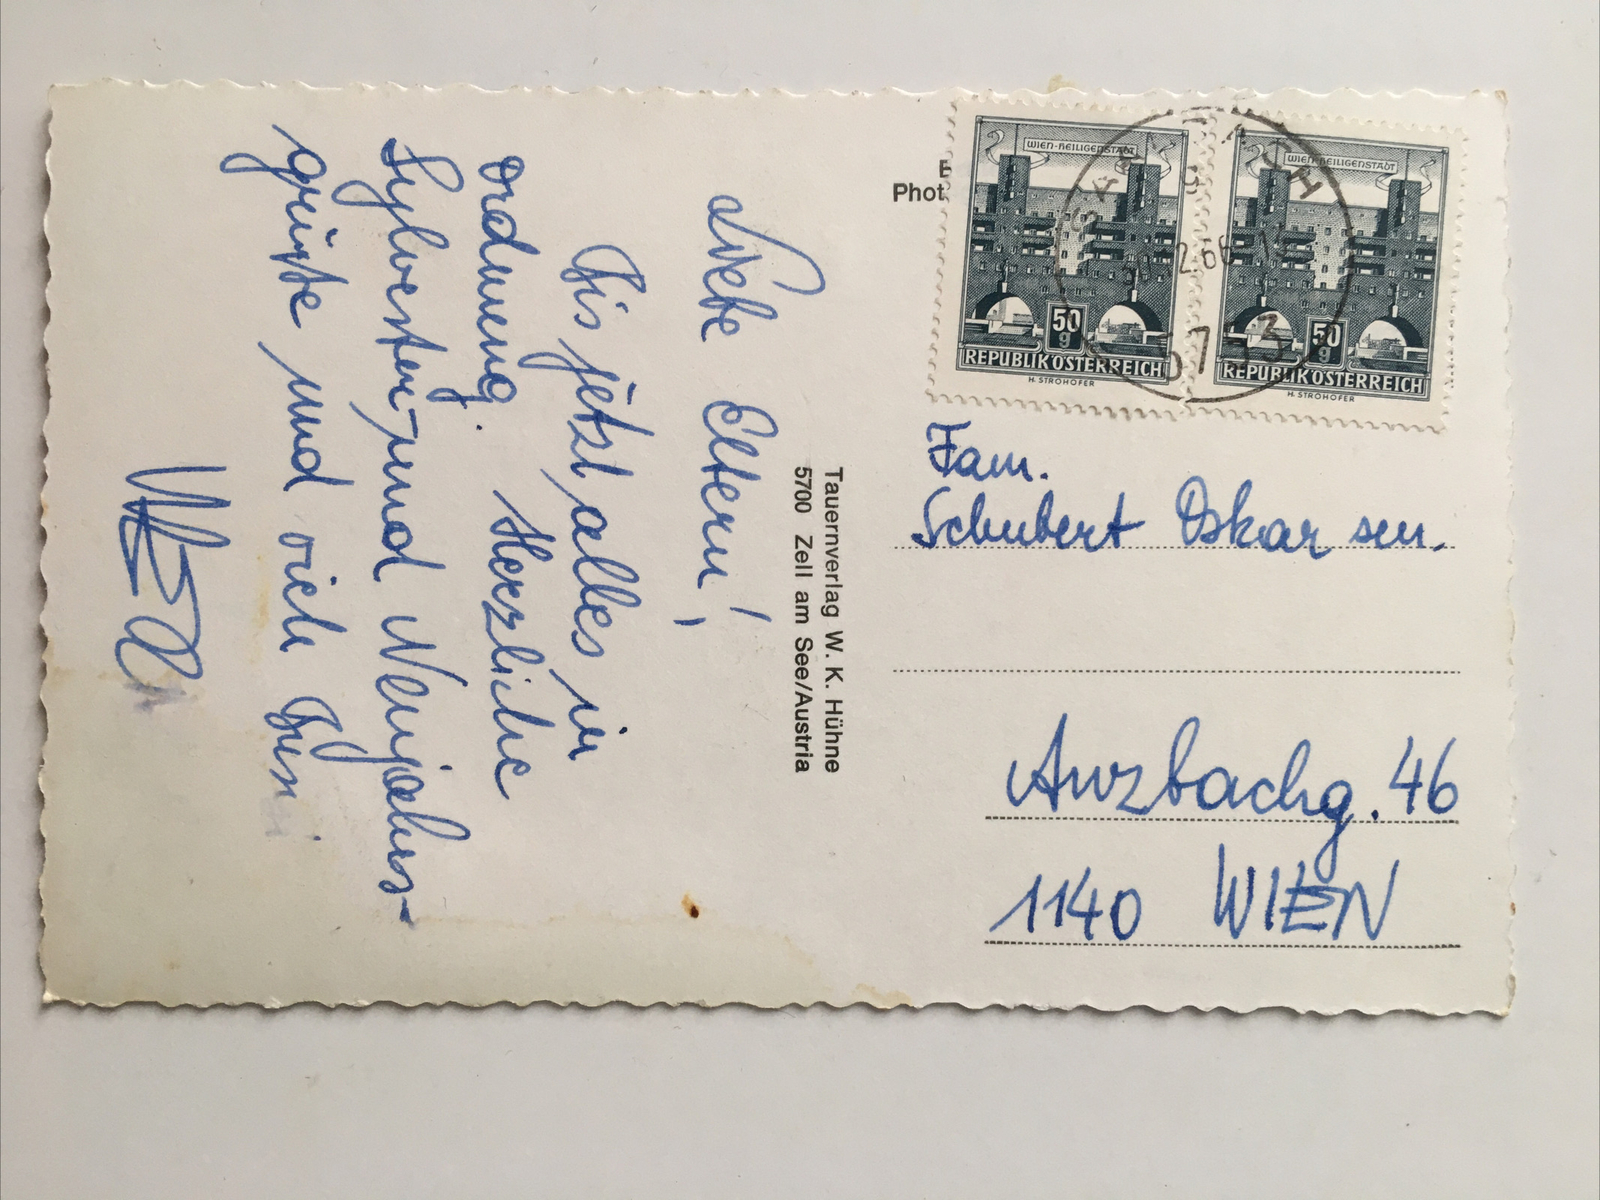 Liebe Eltern!
Bis jetzt alles in
ordnung. Herzliche
Sylvester- und Neujahrs-
grüße und viele
Tauernverlag W. K. Hühne
5700 Zell am See/Austria
Phot
WIEN-HEILIGENSTADT
50
g
REPUBLIK ÖSTERREICH
H. STROHOFER
WIEN-HEILIGENSTADT
50
g
REPUBLIK ÖSTERREICH
H. STROHOFER
5753
Fam.
Schubert Oskar sen.
Anzbachg. 46
1140 WIEN